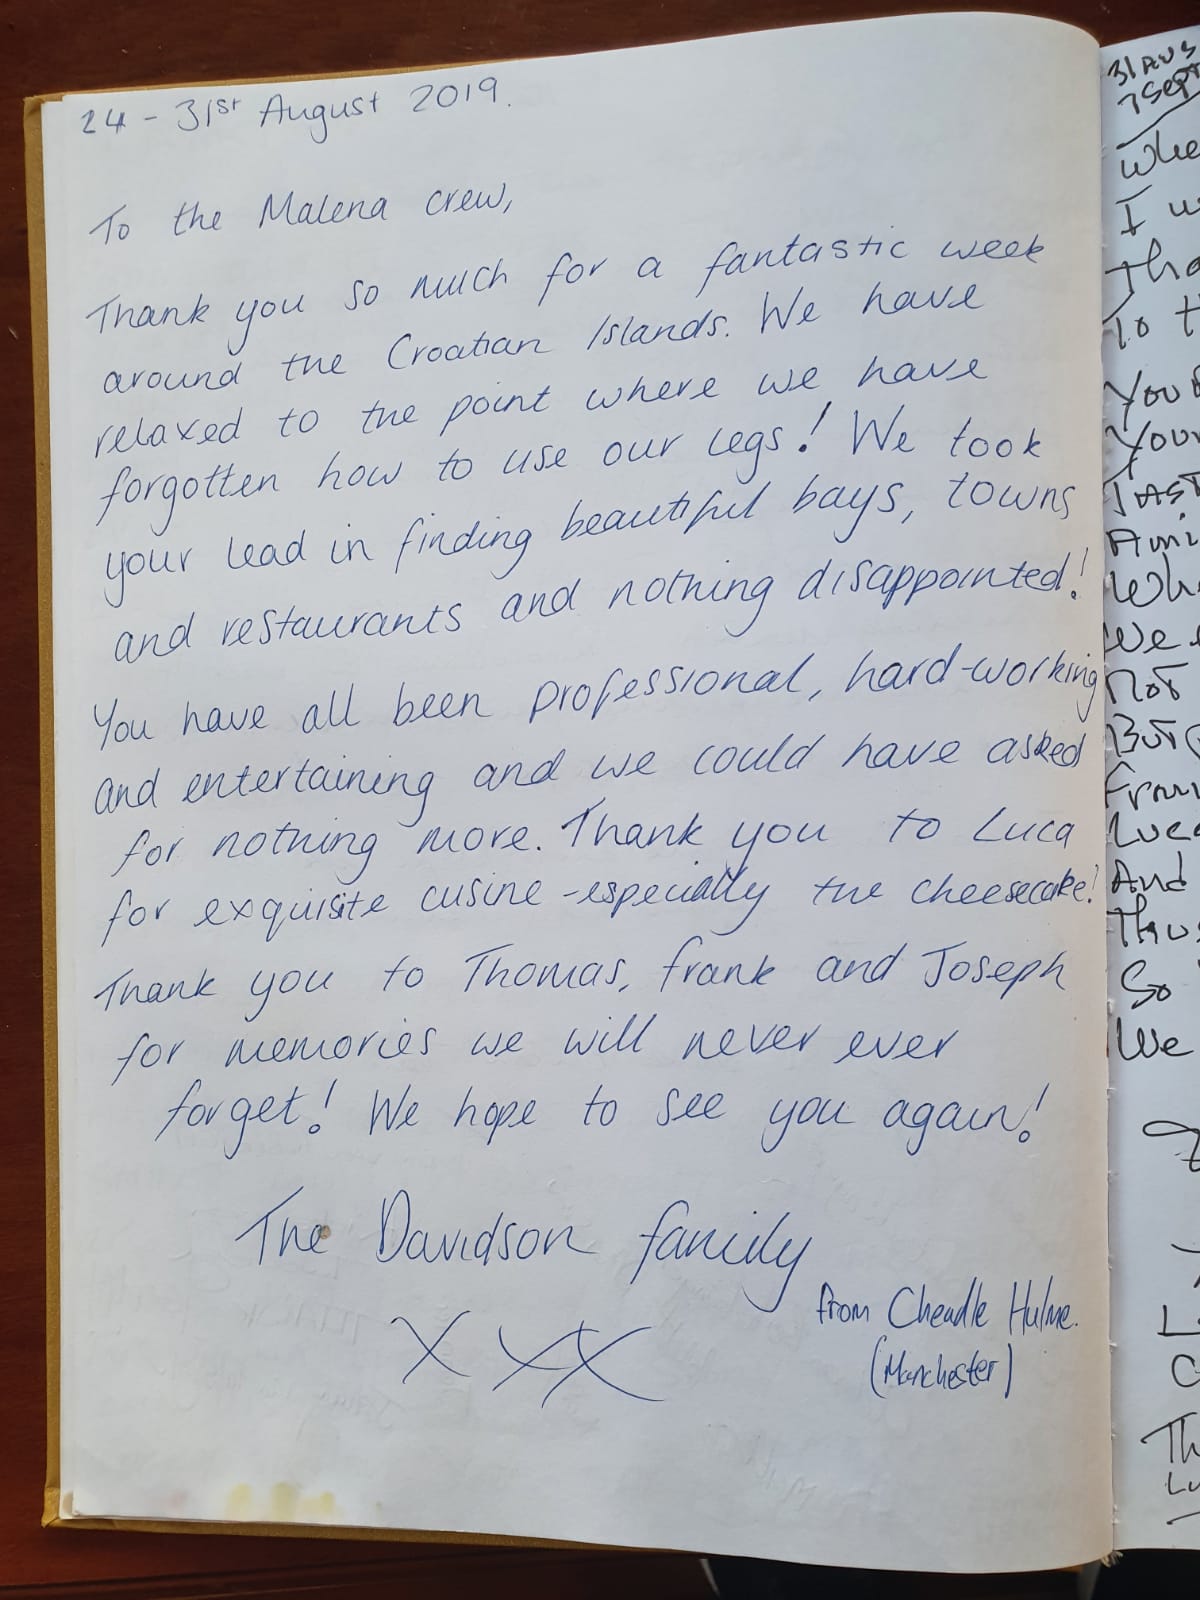 24 - 31st August 2019.
To the Malena crew,
Thank you so much for a fantastic week
around the Croatian Islands. We have
relaxed to the point where we have
forgotten how to use our legs! We took
your lead in finding beautiful bays, towns
and restaurants and nothing disappointed!
You have all been professional, hard-working
and entertaining and we could have asked
for nothing more. Thank you to Luca
for exquisite cusine - especially the cheesecake!
Thank you to Thomas, Frank and Joseph
for memories we will never ever
forget! We hope to see you again!
The Davidson family
from Cheadle Hulme.
(Manchester)
X X X
31 AUG
7 Sept
Whe
I
Tha
To t
You
Your
Just
Ami
Whe
We
Not
But
From
Luca
And
Thus
So
We
Th